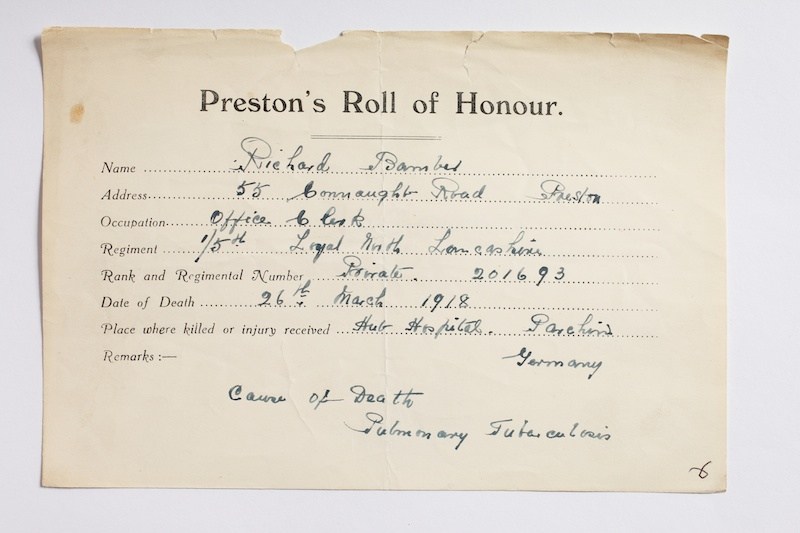 Preston's Roll of Honour.
Name Richard Bamber
Address 55 Connaught Road Preston
Occupation Office Clerk
Regiment 1/5th Loyal North Lancashire
Rank and Regimental Number Private. 201693
Date of Death 26th March 1918
Place where killed or injury received Hut Hospital. Parchim
Remarks :— Germany
Cause of Death
Pulmonary Tuberculosis